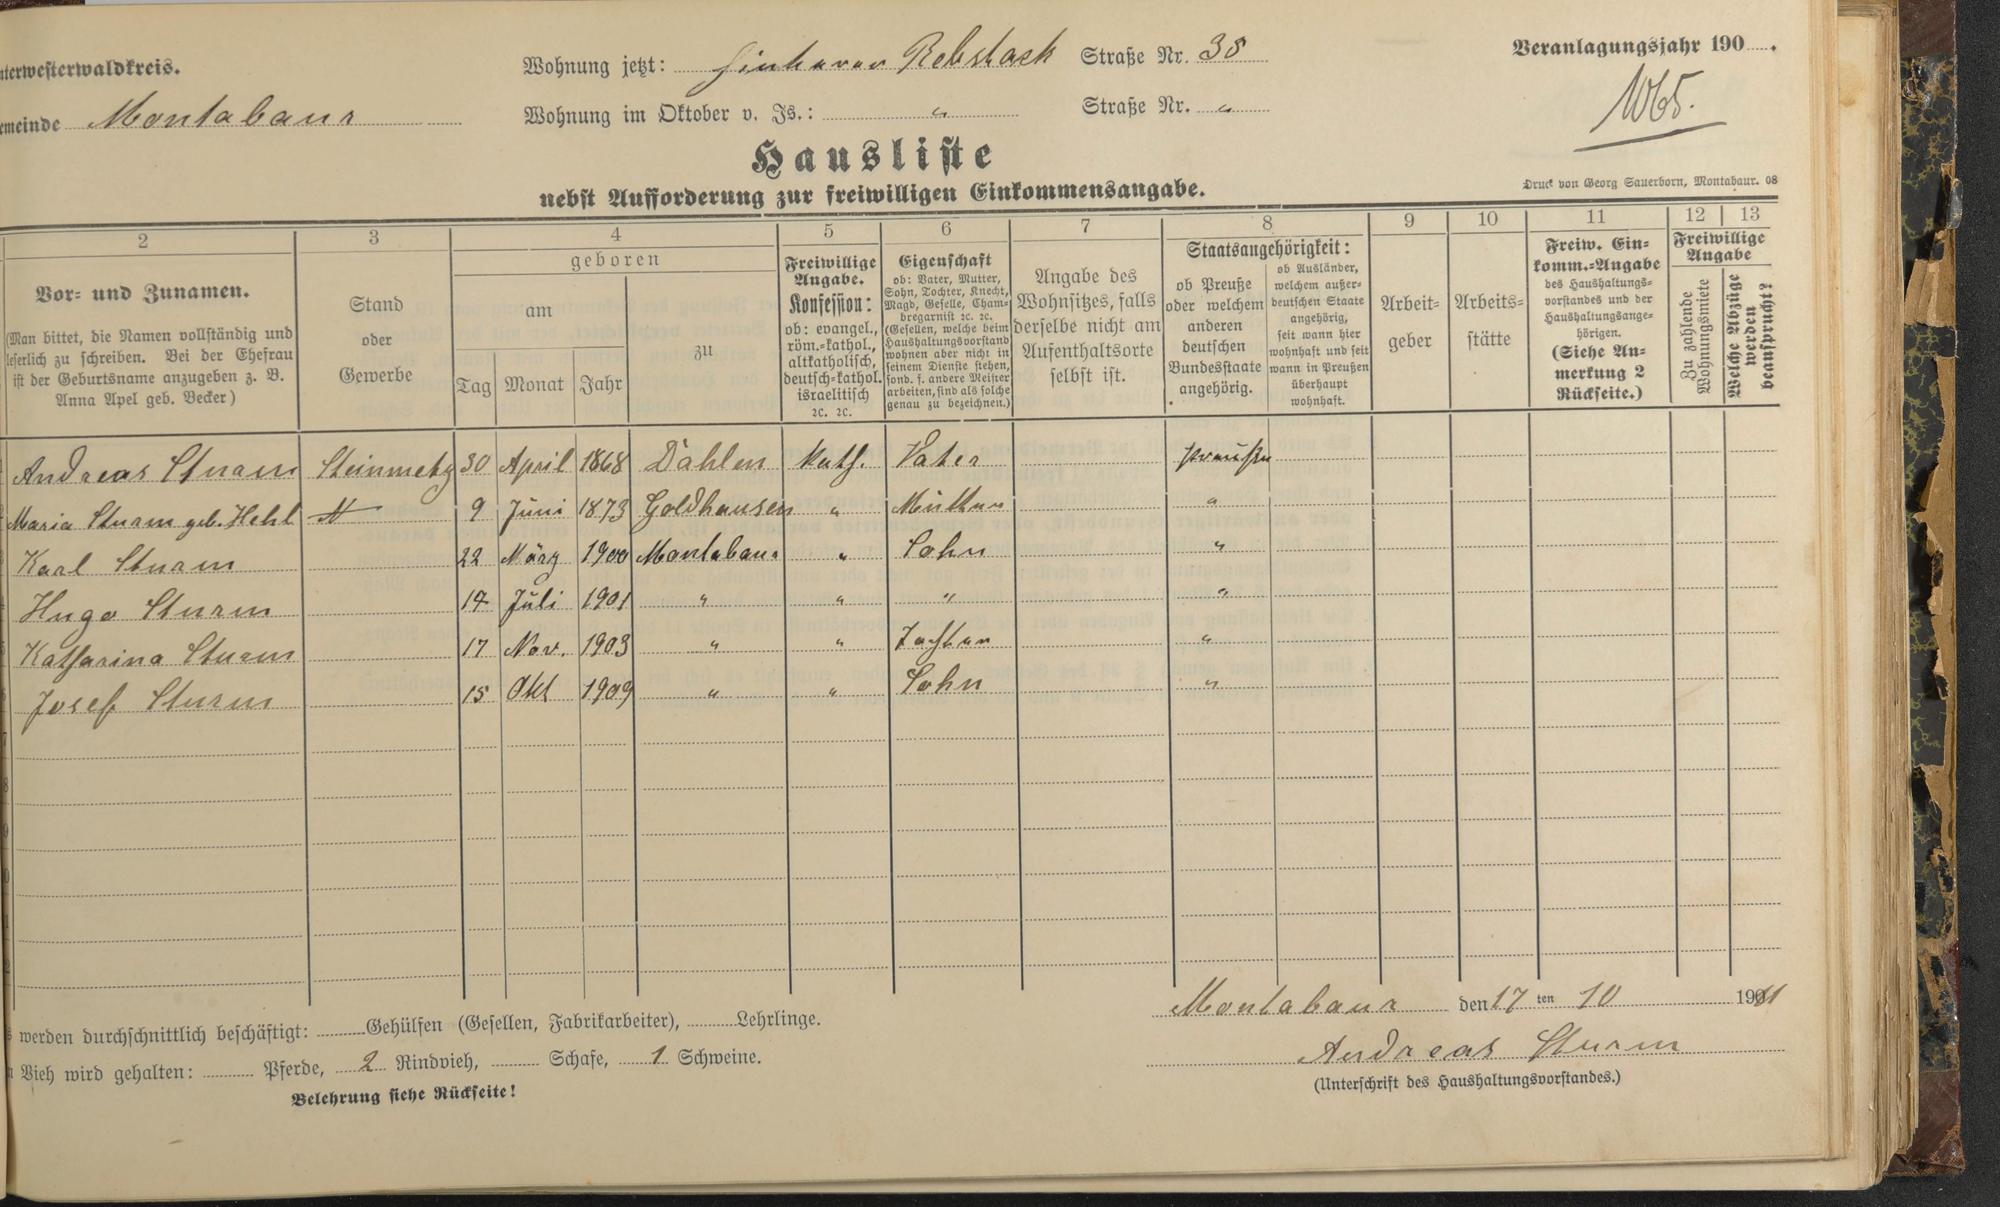 nterwesterwaldkreis.
Wohnung jetzt: Hinterer Rebstock Straße Nr. 38
Veranlagungsjahr 190 .
emeinde Montabaur
Wohnung im Oktober v. Js.: " Straße Nr. "
1065.
Hausliste
nebst Aufforderung zur freiwilligen Einkommensangabe.
Druck von Georg Sauerborn, Montabaur. 08
2 3 4 5 6 7 8 9 10 11 12 13
Vor- und Zunamen.
(Man bittet, die Namen vollständig und
leserlich zu schreiben. Bei der Ehefrau
ist der Geburtsname anzugeben z. B.
Anna Apel geb. Becker)
Stand
oder
Gewerbe
geboren
am
Tag Monat Jahr
zu
Freiwillige
Angabe.
Konfession:
ob: evangel.,
röm.-kathol.,
altkatholisch,
deutsch-kathol.
israelitisch
ꝛc. ꝛc.
Eigenschaft
ob: Vater, Mutter,
Sohn, Tochter, Knecht,
Magd, Geselle, Cham-
bregarnist ꝛc. ꝛc.
(Gesellen, welche beim
Haushaltungsvorstand
wohnen aber nicht in
seinem Dienste stehen,
sond. f. andere Meister
arbeiten, sind als solche
genau zu bezeichnen.)
Angabe des
Wohnsitzes, falls
derselbe nicht am
Aufenthaltsorte
selbst ist.
Staatsangehörigkeit:
ob Preuße
oder welchem
anderen
deutschen
Bundesstaate
angehörig.
ob Ausländer,
welchem außer-
deutschen Staate
angehörig,
seit wann hier
wohnhaft und seit
wann in Preußen
überhaupt
wohnhaft.
Arbeit-
geber
Arbeits-
stätte
Freiw. Ein-
komm.-Angabe
des Haushaltungs-
vorstandes und der
Haushaltungsange-
hörigen.
(Siehe An-
merkung 2
Rückseite.)
Freiwillige
Angabe
Zu zahlende
Wohnungsmiete
Welche Abzüge
werden
beansprucht?
Andreas Sturm Steinmetz 30 April 1868 Dahlen kath. Vater Preuße
Maria Sturm geb. Hehl 9 Juni 1873 Goldhausen " Mutter "
Karl Sturm 22 März 1900 Montabaur " Sohn "
Hugo Sturm 14 Juli 1901 " " " "
Katharina Sturm 17 Nov. 1903 " " Tochter "
Josef Sturm 15 Okt 1909 " " Sohn "
7
8
9
0
1
2
Montabaur den 17 ten 10 1911
s werden durchschnittlich beschäftigt: Gehülfen (Gesellen, Fabrikarbeiter), Lehrlinge.
Andreas Sturm
n Vieh wird gehalten: Pferde, 2 Rindvieh, Schafe, 1 Schweine.
(Unterschrift des Haushaltungsvorstandes.)
Belehrung siehe Rückseite!